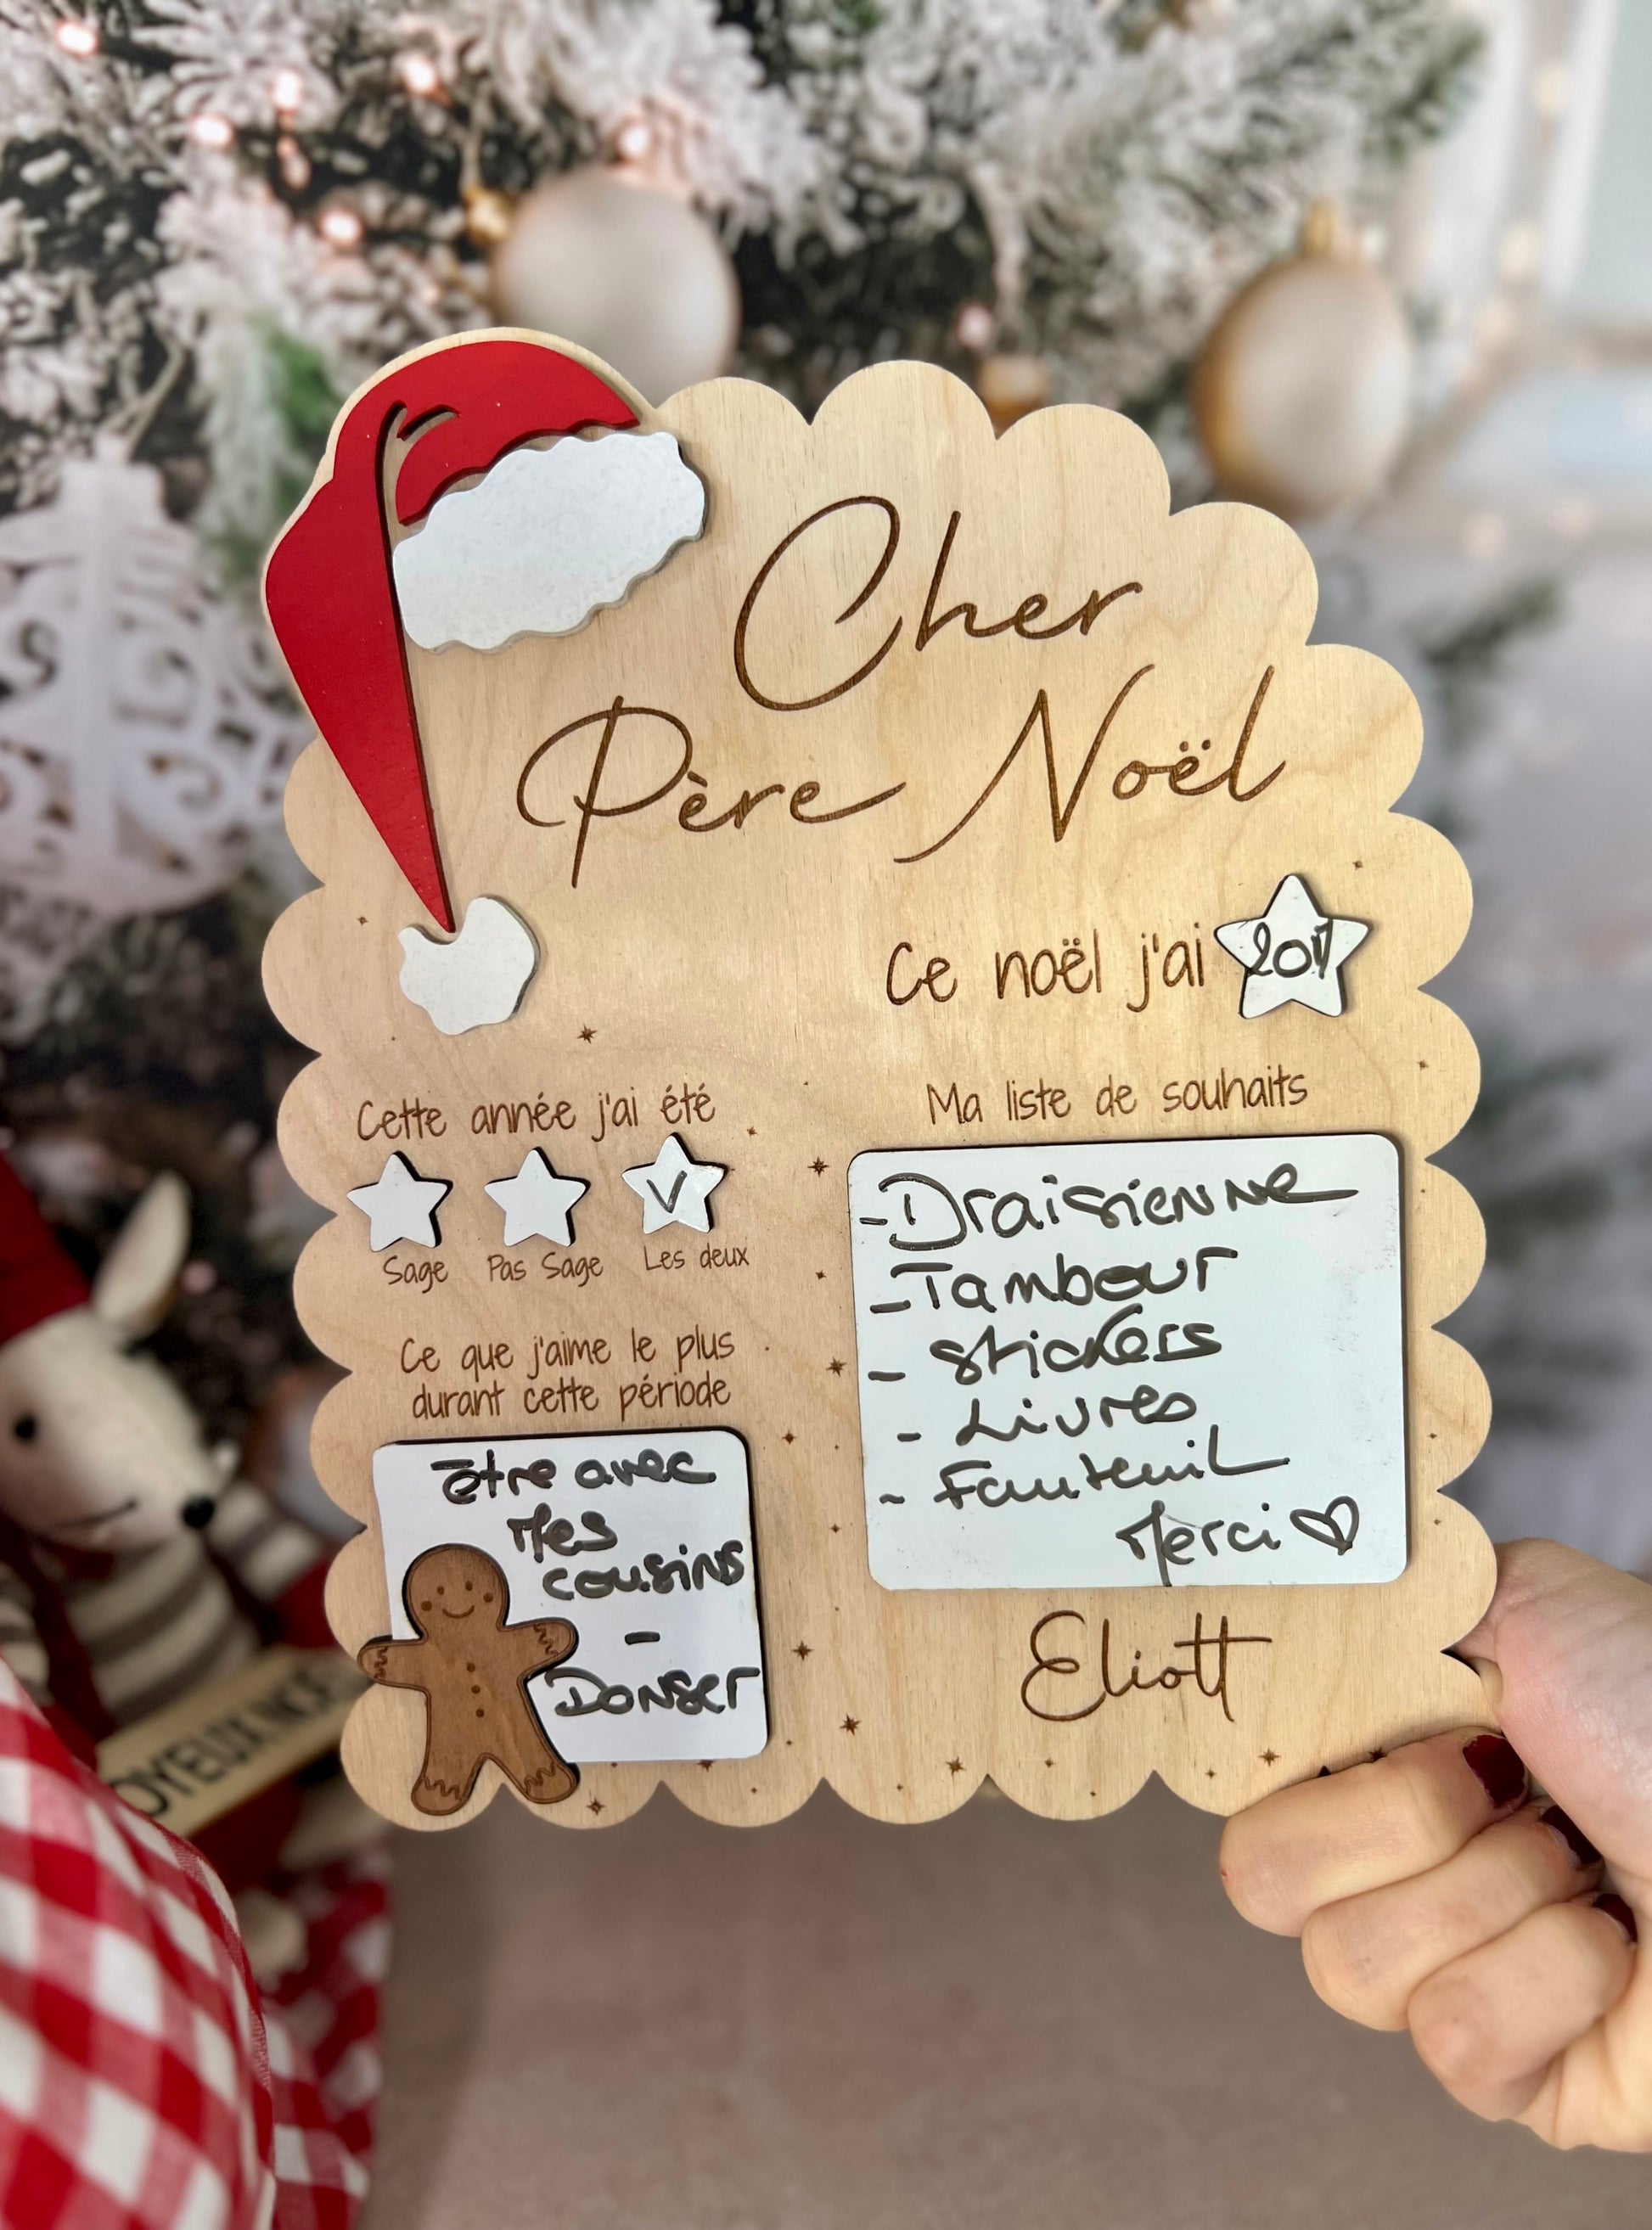 Cher
Père Noël
Ce noël j'ai
Cette année j'ai été
✓
Sage Pas Sage Les deux
Ce que j'aime le plus
durant cette période
être avec
Mes
cousins
-
Danser
Ma liste de souhaits
- Draisienne
- Tambour
- stickers
- Livres
- Fauteuil
Merci ♡
Eliott